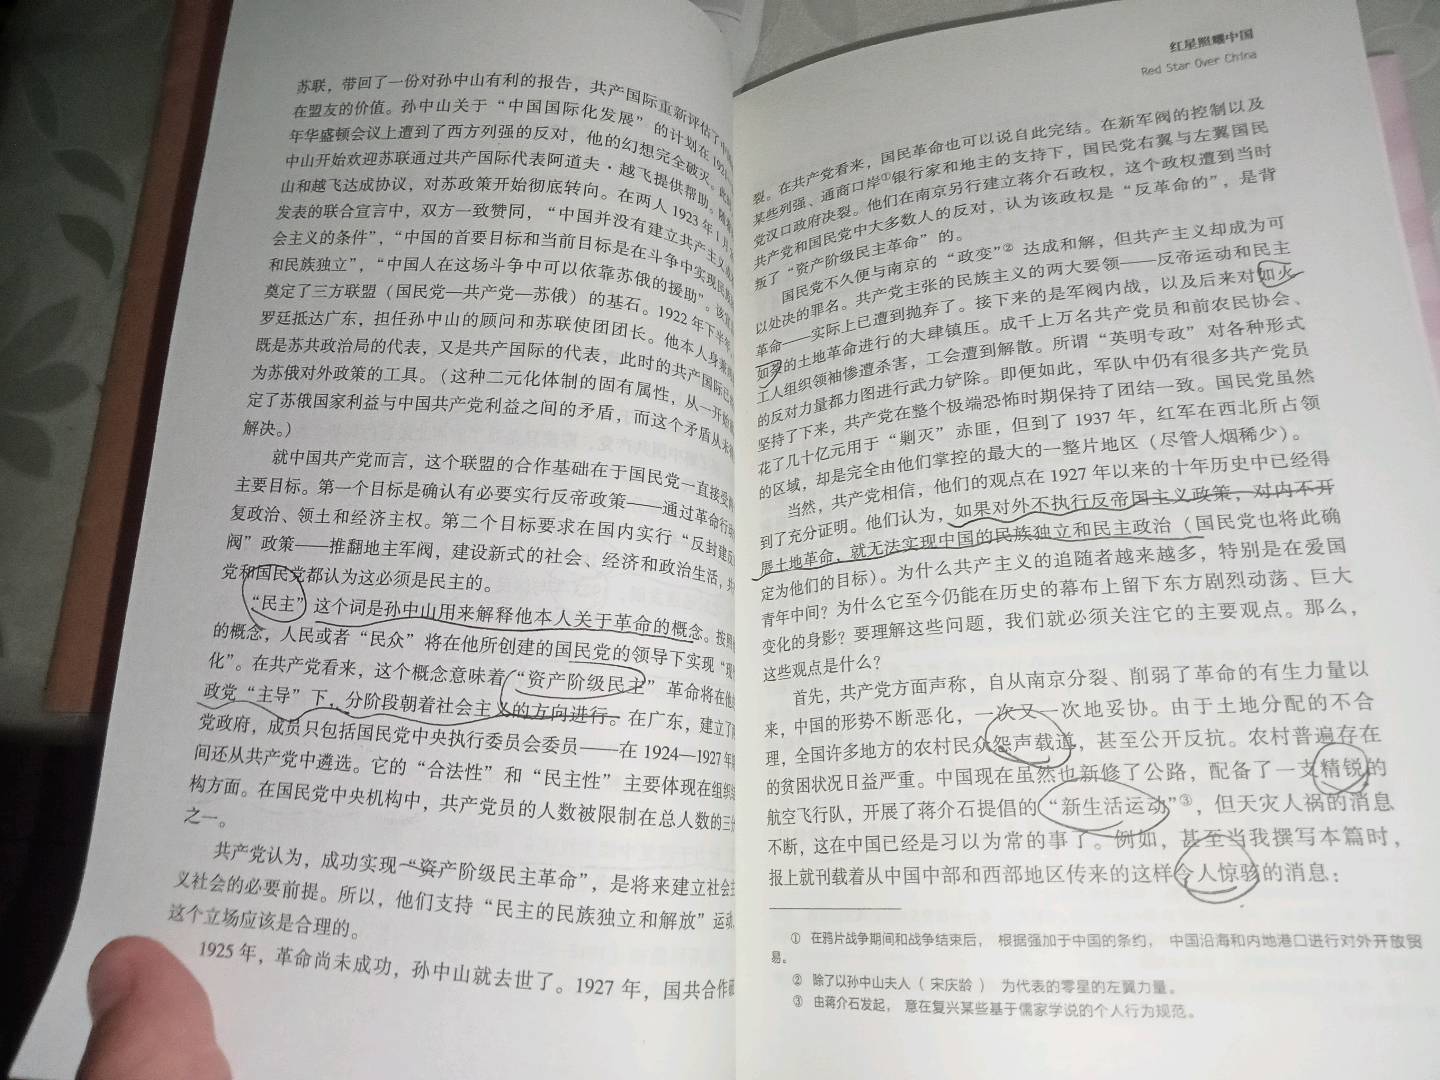 苏联，带回了一份对孙中山有利的报告，共产国际重新评估了
在盟友的价值。孙中山关于“中国国际化发展”的计划在
年华盛顿会议上遭到了西方列强的反对，他的幻想完全破灭。
中山开始欢迎苏联通过共产国际代表阿道夫·越飞提供帮助。
山和越飞达成协议，对苏政策开始彻底转向。在两人1923年1月
发表的联合宣言中，双方一致赞同，“中国并没有建立共产主义
会主义的条件”，“中国的首要目标和当前目标是在斗争中实现
和民族独立”，“中国人在这场斗争中可以依靠苏俄的援助”。
奠定了三方联盟（国民党—共产党—苏俄）的基石。1922年下半年，
罗廷抵达广东，担任孙中山的顾问和苏联使团团长。他本人身
既是苏共政治局的代表，又是共产国际的代表，此时的共产国际已
为苏俄对外政策的工具。（这种二元化体制的固有属性，从一开始
定了苏俄国家利益与中国共产党利益之间的矛盾，而这个矛盾从未
解决。）
就中国共产党而言，这个联盟的合作基础在于国民党一直接受
主要目标。第一个目标是确认有必要实行反帝政策——通过革命行动
复政治、领土和经济主权。第二个目标要求在国内实行“反封建反
阀”政策——推翻地主军阀，建设新式的社会、经济和政治生活，共
党和国民党都认为这必须是民主的。
“民主”这个词是孙中山用来解释他本人关于革命的概念。按照
的概念，人民或者“民众”将在他所创建的国民党的领导下实现“现
化”。在共产党看来，这个概念意味着“资产阶级民主”革命将在他
政党“主导”下，分阶段朝着社会主义的方向进行。在广东，建立了
党政府，成员只包括国民党中央执行委员会委员——在1924—1927年
间还从共产党中遴选。它的“合法性”和“民主性”主要体现在组织
构方面。在国民党中央机构中，共产党员的人数被限制在总人数的三分
之一。
共产党认为，成功实现“资产阶级民主革命”，是将来建立社会
义社会的必要前提。所以，他们支持“民主的民族独立和解放”运动，
这个立场应该是合理的。
1925年，革命尚未成功，孙中山就去世了。1927年，国共合作破
红星照耀中国
Red Star Over China
裂。在共产党看来，国民革命也可以说自此完结。在新军阀的控制以及
某些列强、通商口岸①银行家和地主的支持下，国民党右翼与左翼国民
党汉口政府决裂。他们在南京另行建立蒋介石政权，这个政权遭到当时
共产党和国民党中大多数人的反对，认为该政权是“反革命的”，是背
叛了“资产阶级民主革命”的。
国民党不久便与南京的“政变”②达成和解，但共产主义却成为可
以处决的罪名。共产党主张的民族主义的两大要领——反帝运动和民主
革命——实际上已遭到抛弃了。接下来的是军阀内战，以及后来对如火
如荼的土地革命进行的大肆镇压。成千上万名共产党员和前农民协会、
工人组织领袖惨遭杀害，工会遭到解散。所谓“英明专政”对各种形式
的反对力量都力图进行武力铲除。即便如此，军队中仍有很多共产党员
坚持了下来，共产党在整个极端恐怖时期保持了团结一致。国民党虽然
花了几十亿元用于“剿灭”赤匪，但到了1937年，红军在西北所占领
的区域，却是完全由他们掌控的最大的一整片地区（尽管人烟稀少）。
当然，共产党相信，他们的观点在1927年以来的十年历史中已经得
到了充分证明。他们认为，如果对外不执行反帝国主义政策，对内不开
展土地革命，就无法实现中国的民族独立和民主政治（国民党也将此确
定为他们的目标）。为什么共产主义的追随者越来越多，特别是在爱国
青年中间？为什么它至今仍能在历史的幕布上留下东方剧烈动荡、巨大
变化的身影？要理解这些问题，我们就必须关注它的主要观点。那么，
这些观点是什么？
首先，共产党方面声称，自从南京分裂、削弱了革命的有生力量以
来，中国的形势不断恶化，一次又一次地妥协。由于土地分配的不合
理，全国许多地方的农村民众怨声载道，甚至公开反抗。农村普遍存在
的贫困状况日益严重。中国现在虽然也新修了公路，配备了一支精锐的
航空飞行队，开展了蒋介石提倡的“新生活运动”③，但天灾人祸的消息
不断，这在中国已经是习以为常的事了。例如，甚至当我撰写本篇时，
报上就刊载着从中国中部和西部地区传来的这样令人惊骇的消息：
① 在鸦片战争期间和战争结束后，根据强加于中国的条约，中国沿海和内地港口进行对外开放贸
易。
② 除了以孙中山夫人（宋庆龄）为代表的零星的左翼力量。
③ 由蒋介石发起，意在复兴某些基于儒家学说的个人行为规范。